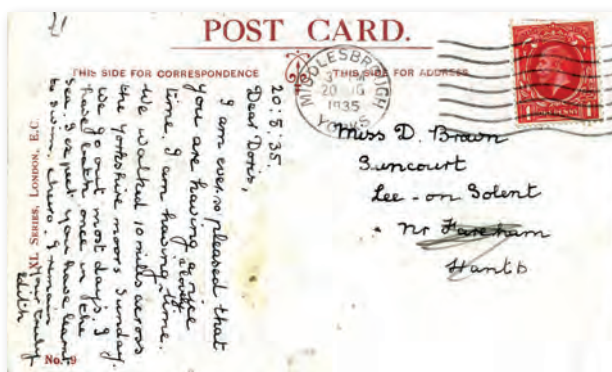 POST CARD.
THIS SIDE FOR CORRESPONDENCE
THIS SIDE FOR ADDRESS
MIDDLESBROUGH
20 AUG
1935
YORKS
1
20.8.35.
Dear Doris,
I am ever so pleased that
you are having a nice
time. I am having
a lovely
time.
We walked 10 miles across
the Yorkshire moors Sunday.
We go out most days. I
have been once in the
sea. I expect you have learnt
to swim. I remain
Your truly
Edith
Miss D. Brown
Suncourt
Lee-on Solent
Nr Fareham
Hants
IXL SERIES, LONDON, E.C.
No. 9